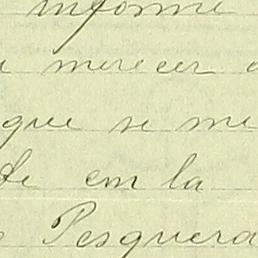 informe
merecer
que se me
de en la
Pesquera